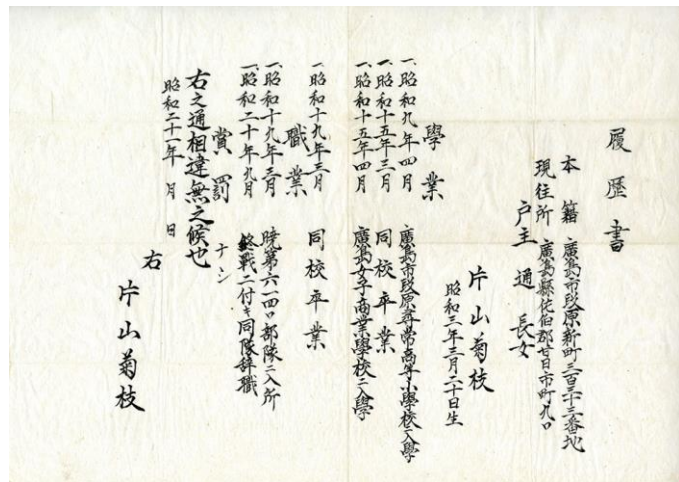 履歴書
本籍 廣島市段原新町三百三十三番地
現住所 廣島縣佐伯郡廿日市町九〇
戸主 通 長女
片山菊枝
昭和三年三月二十日生
學業
一、昭和九年四月 廣島市段原尋常高等小學校ニ入學
一、昭和十五年三月 同校卒業
一、昭和十五年四月 廣島女子商業學校ニ入學
一、昭和十九年三月 同校卒業
職業
一、昭和十九年三月 暁第六一四〇部隊ニ入所
一、昭和二十年九月 終戰ニ付キ同隊辞職
賞罰
ナシ
右之通相違無之候也
昭和二十一年 月 日
右 片山菊枝